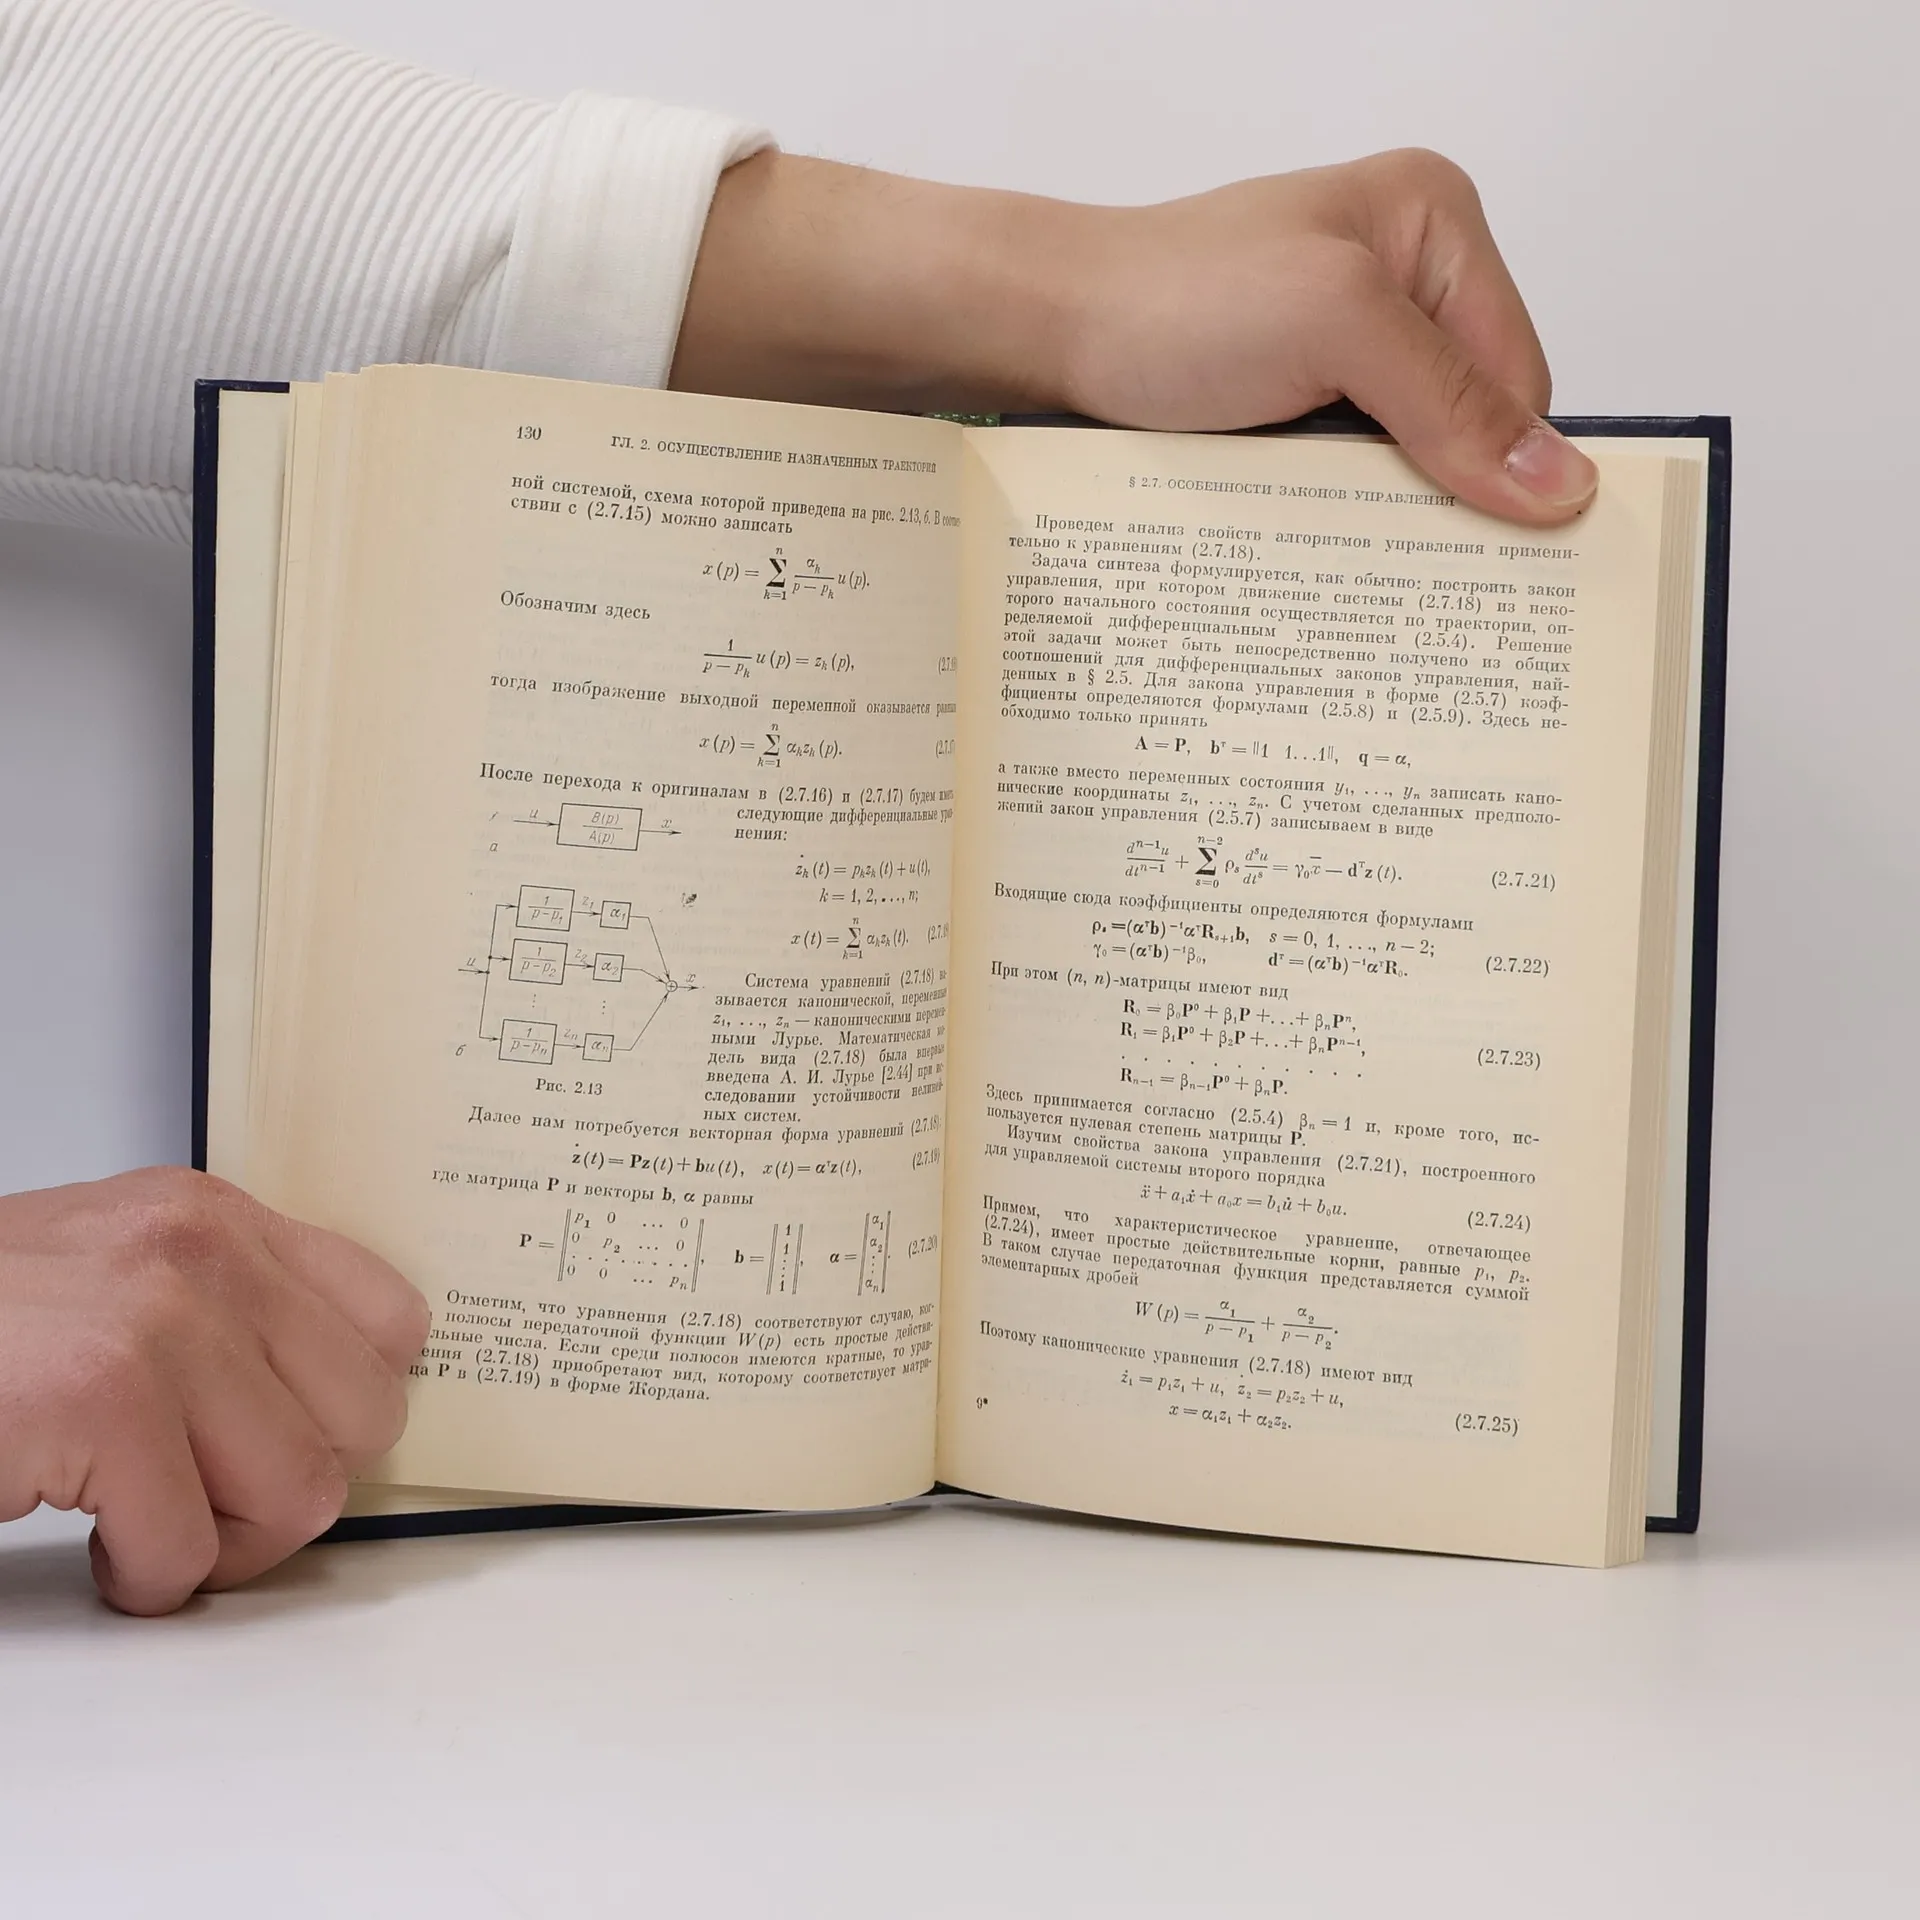 130
ГЛ. 2. ОСУЩЕСТВЛЕНИЕ НАЗНАЧЕННЫХ ТРАЕКТОРИЙ
ной системой, схема которой приведена на рис. 2.13, б. В соотве-
ствии с (2.7.15) можно записать
x (p) = ∑ₖ₌₁ⁿ αₖ/(p − pₖ) u (p).
Обозначим здесь
1/(p − pₖ) u (p) = zₖ (p), (2.7.16)
тогда изображение выходной переменной оказывается равным
x (p) = ∑ₖ₌₁ⁿ αₖzₖ (p). (2.7.17)
После перехода к оригиналам в (2.7.16) и (2.7.17) будем иметь
следующие дифференциальные урав-
нения:
żₖ (t) = pₖzₖ (t) + u (t),
k = 1, 2, ..., n;
x (t) = ∑ₖ₌₁ⁿ αₖzₖ (t). (2.7.18)
Система уравнений (2.7.18) на-
зывается канонической, переменные
z₁, ..., zₙ — каноническими перемен-
ными Лурье. Математическая мо-
дель вида (2.7.18) была впервые
введена А. И. Лурье [2.44] при ис-
следовании устойчивости нелиней-
ных систем.
u B(p)/A(p) x
а
u 1/(p−p₁) z₁ α₁
1/(p−p₂) z₂ α₂ x
⋮ ⋮
1/(p−pₙ) zₙ αₙ
б
Рис. 2.13
Далее нам потребуется векторная форма уравнений (2.7.18):
ż (t) = Pz (t) + bu (t), x (t) = αᵀz (t), (2.7.19)
где матрица P и векторы b, α равны
P = ‖p₁ 0 ... 0; 0 p₂ ... 0; . . . . . .; 0 0 ... pₙ‖, b = ‖1; 1; ⋮; 1‖, α = ‖α₁; α₂; ⋮; αₙ‖. (2.7.20)
Отметим, что уравнения (2.7.18) соответствуют случаю, ког-
полюсы передаточной функции W (p) есть простые действи-
льные числа. Если среди полюсов имеются кратные, то урав-
ения (2.7.18) приобретают вид, которому соответствует матри-
ца P в (2.7.19) в форме Жордана.
§ 2.7. ОСОБЕННОСТИ ЗАКОНОВ УПРАВЛЕНИЯ
Проведем анализ свойств алгоритмов управления примени-
тельно к уравнениям (2.7.18).
Задача синтеза формулируется, как обычно: построить закон
управления, при котором движение системы (2.7.18) из неко-
торого начального состояния осуществляется по траектории, оп-
ределяемой дифференциальным уравнением (2.5.4). Решение
этой задачи может быть непосредственно получено из общих
соотношений для дифференциальных законов управления, най-
денных в § 2.5. Для закона управления в форме (2.5.7) коэф-
фициенты определяются формулами (2.5.8) и (2.5.9). Здесь не-
обходимо только принять
A = P, bᵀ = ‖1 1...1‖, q = α,
а также вместо переменных состояния y₁, ..., yₙ записать кано-
нические координаты z₁, ..., zₙ. С учетом сделанных предполо-
жений закон управления (2.5.7) записываем в виде
dⁿ⁻¹u/dtⁿ⁻¹ + ∑ₛ₌₀ⁿ⁻² ρₛ dˢu/dtˢ = γ₀x̄ − dᵀz (t). (2.7.21)
Входящие сюда коэффициенты определяются формулами
ρₛ = (αᵀb)⁻¹αᵀRₛ₊₁b, s = 0, 1, ..., n − 2;
γ₀ = (αᵀb)⁻¹β₀, dᵀ = (αᵀb)⁻¹αᵀR₀. (2.7.22)
При этом (n, n)-матрицы имеют вид
R₀ = β₀P⁰ + β₁P + ... + βₙPⁿ,
R₁ = β₁P⁰ + β₂P + ... + βₙPⁿ⁻¹,
. . . . . . . . (2.7.23)
Rₙ₋₁ = βₙ₋₁P⁰ + βₙP.
Здесь принимается согласно (2.5.4) βₙ = 1 и, кроме того, ис-
пользуется нулевая степень матрицы P.
Изучим свойства закона управления (2.7.21), построенного
для управляемой системы второго порядка
ẍ + a₁ẋ + a₀x = b₁u̇ + b₀u. (2.7.24)
Примем, что характеристическое уравнение, отвечающее
(2.7.24), имеет простые действительные корни, равные p₁, p₂.
В таком случае передаточная функция представляется суммой
элементарных дробей
W (p) = α₁/(p − p₁) + α₂/(p − p₂).
Поэтому канонические уравнения (2.7.18) имеют вид
ż₁ = p₁z₁ + u, ż₂ = p₂z₂ + u,
x = α₁z₁ + α₂z₂. (2.7.25)
9*